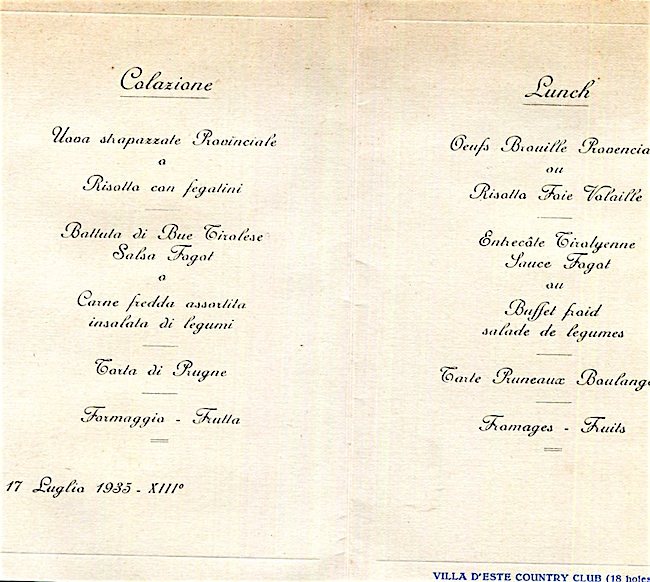 Colazione
Uova strapazzate Provinciale
o
Risotto con fegatini
Battuta di Bue Tirolese
Salsa Fagot
o
Carne fredda assortita
insalata di legumi
Torta di Prugne
Formaggio - Frutta
17 Luglio 1935 - XIIIº
Lunch
Oeufs Brouille Provencia
ou
Risotto Foie Volaille
Entrecâte Tirolyenne
Sauce Fagot
ou
Buffet froid
salade de legumes
Tarte Pruneaux Boulang
Fromages - Fruits
VILLA D'ESTE COUNTRY CLUB (18 holes